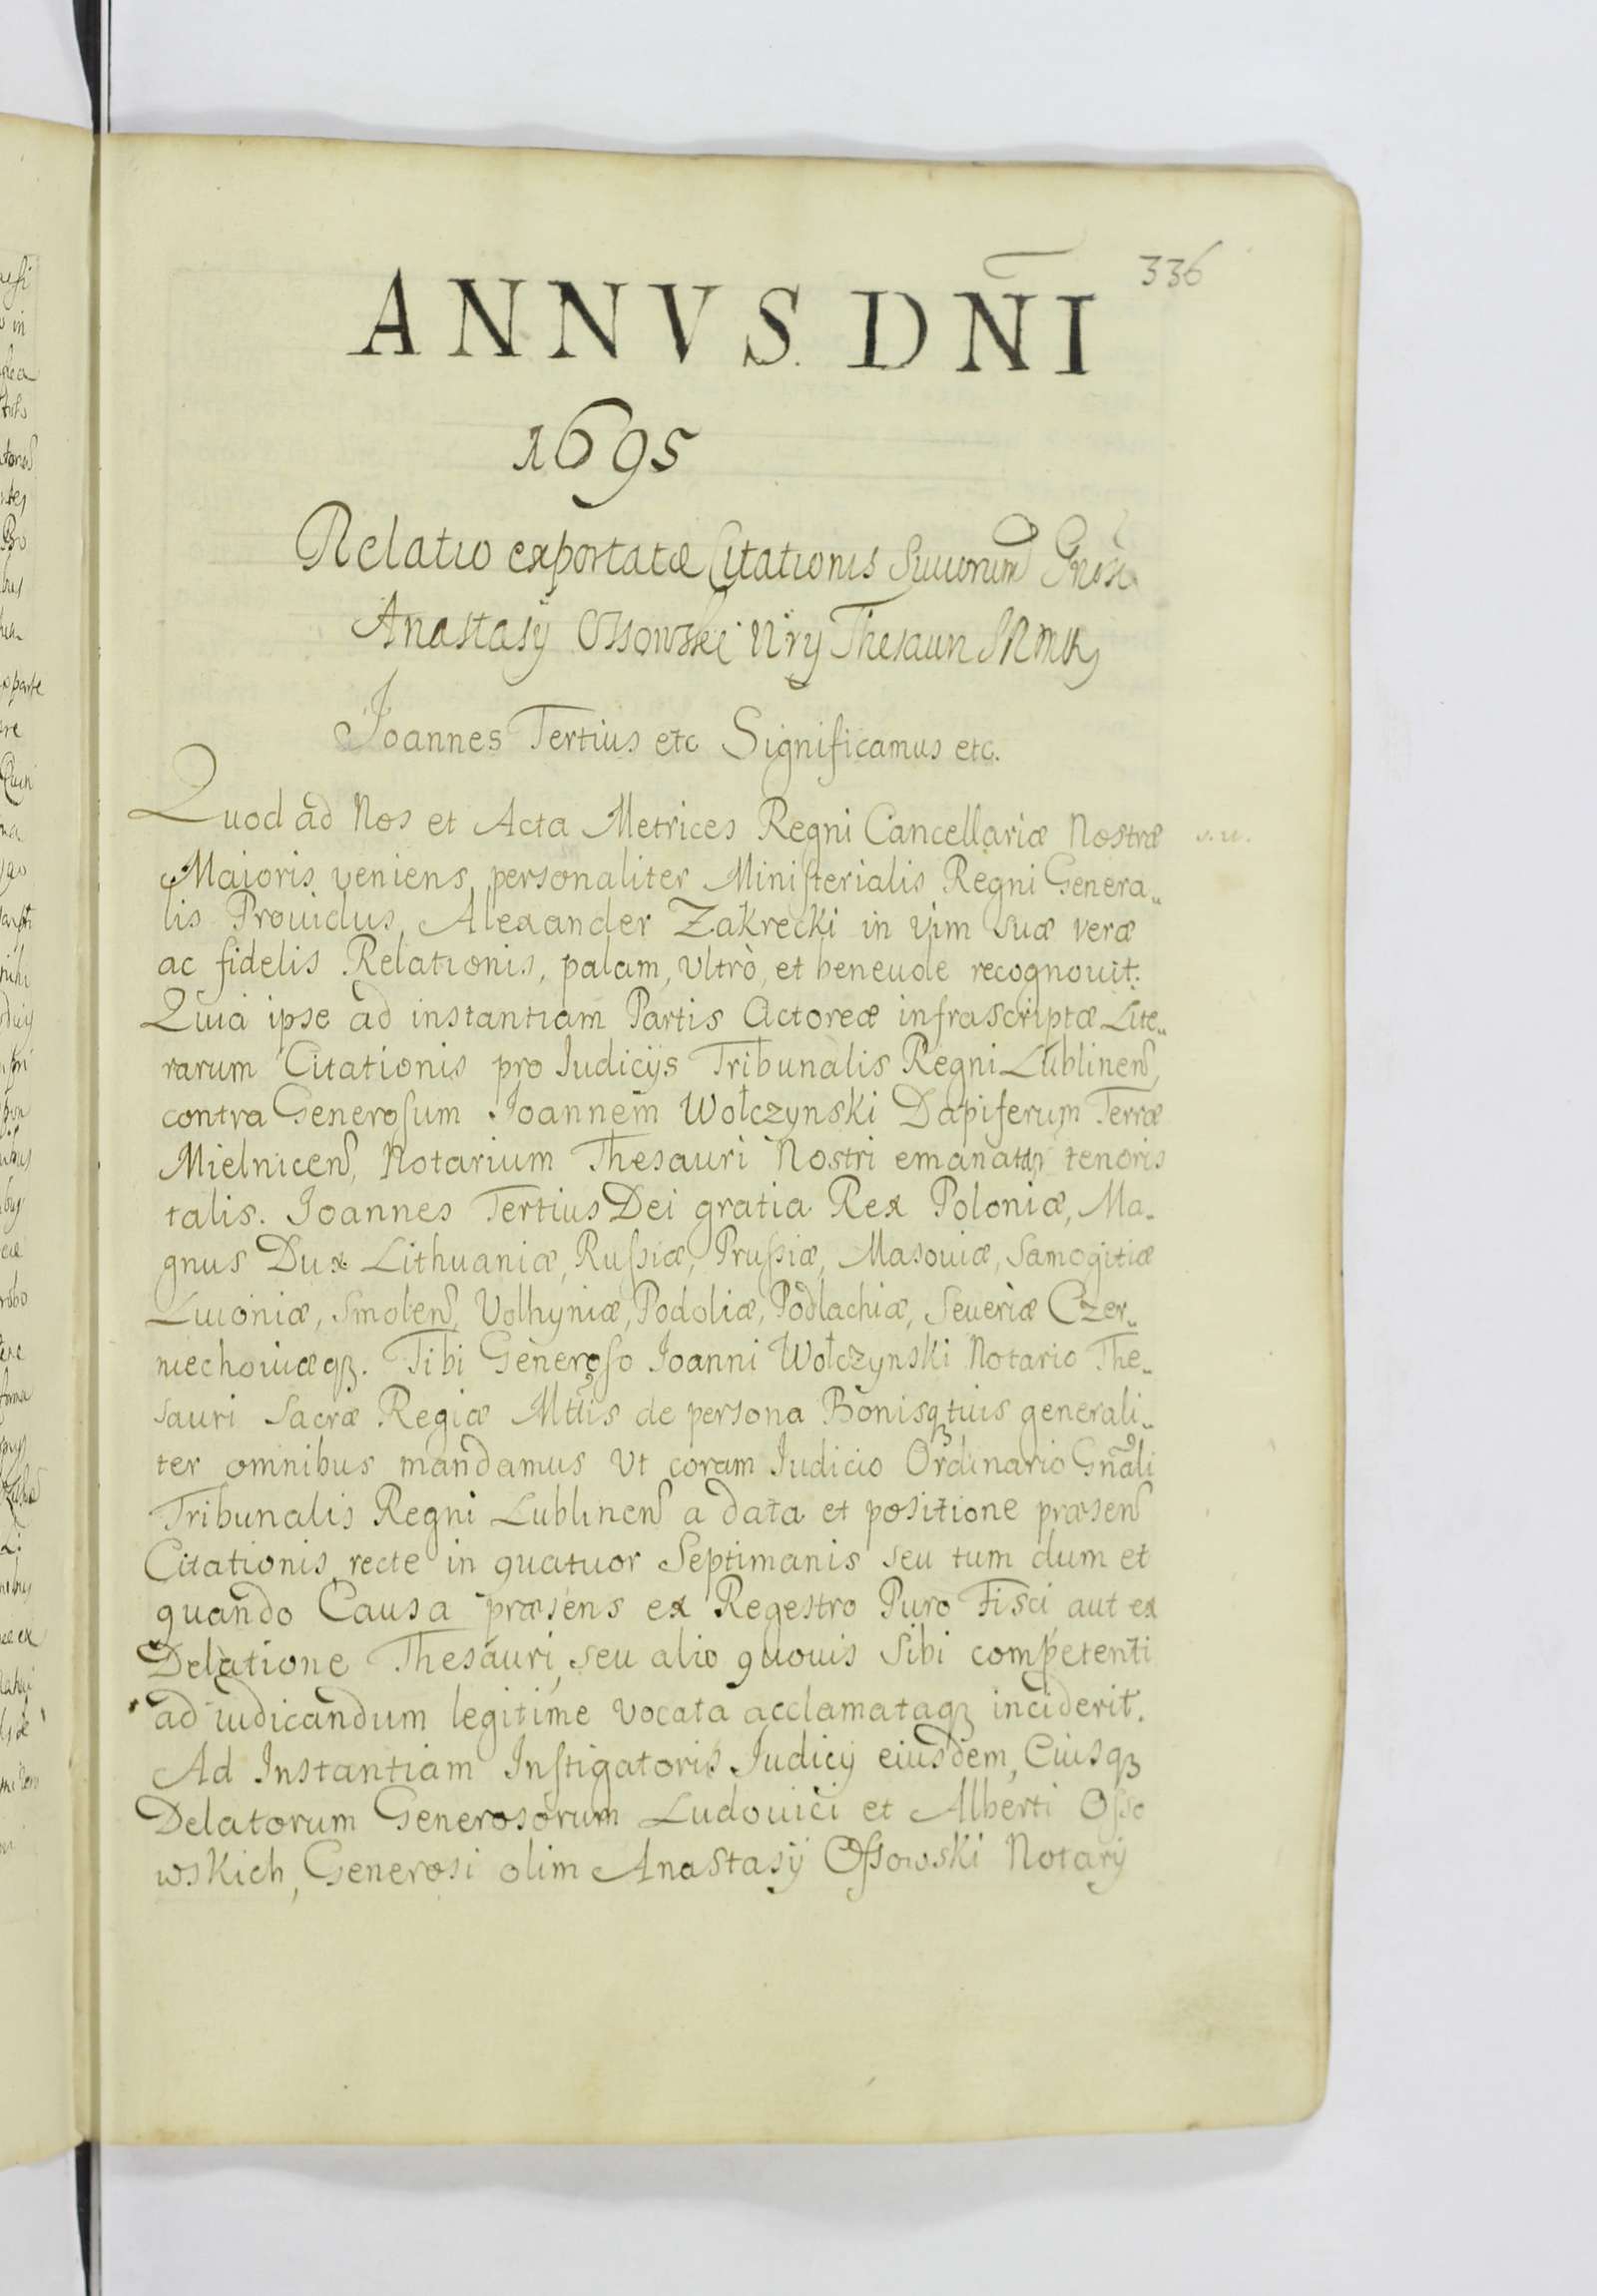 336
ANNVS DÑI
1695
Relatio exportatæ Citationis Gnosi
Anastasÿ Ossowski Nrÿ Thesauri SRM
Joannes Tertius etc Significamus etc.
Quod ad Nos et Acta Metrices Regni Cancellariæ Nostræ
Maioris veniens personaliter Ministerialis Regni Genera„
lis Prouidus Alexander Zakrecki in vim suæ veræ
ac fidelis Relationis, palam, vltrò, et beneuole recognouit.
Quia ipse ad instantiam Partis Actoreæ infrascriptæ Lite„
rarum Citationis pro Iudicijs Tribunalis Regni Lublinens,
contra Generosum Joannem Wołczynski Dapiferum Terræ
Mielnicens, Notarium Thesauri Nostri tenoris
talis. Joannes Tertius Dei gratia Rex Poloniæ, Ma„
gnus Dux Lithuaniæ, Russiæ, Prussiæ, Masouiæ, Samogitiæ
Liuoniæ, Smolens, Volhyniæ, Podoliæ, Podlachiæ, Seueriæ Czer„
niechouiæqꝫ. Tibi Generoso Ioanni Wołczynski Notario The„
sauri Sacræ Regiæ Mttis de persona Bonisqꝫ tuis generali„
ter omnibus mandamus vt coram Iudicio Ordinario Gnãli
Tribunalis Regni Lublinens a data et positione præsens
Citationis recte in quatuor Septimanis seu tum dum et
quando Causa præsens ex Regestro Puro Fisci, aut ex
Delatione Thesauri, seu alio quouis sibi competenti
ad iudicandum legitime vocata acclamataqꝫ inciderit.
Ad Instantiam Instigatoris Judicÿ eiusdem, Eiusqꝫ
Delatorum Generosorum Ludouici et Alberti Osso
wskich, Generosi olim Anastasÿ Ossowski Notarÿ